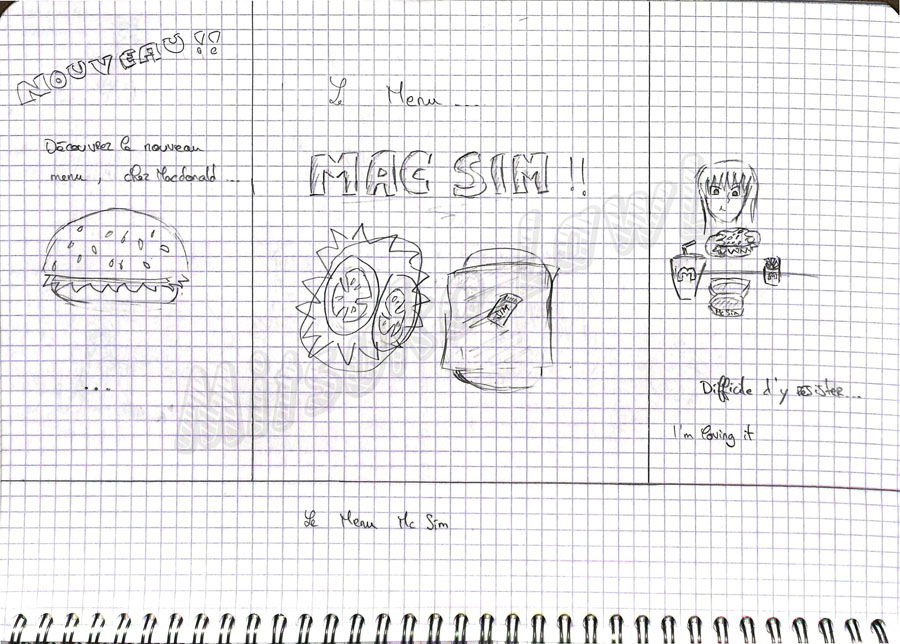 NOUVEAU !!
Découvrez le nouveau
menu, chez Macdonald ...
...
Le Menu ...
MAC SIM !!
SIM
M
M
Mc Sim
Difficile d'y resister...
I'm loving it
Le Menu Mc Sim